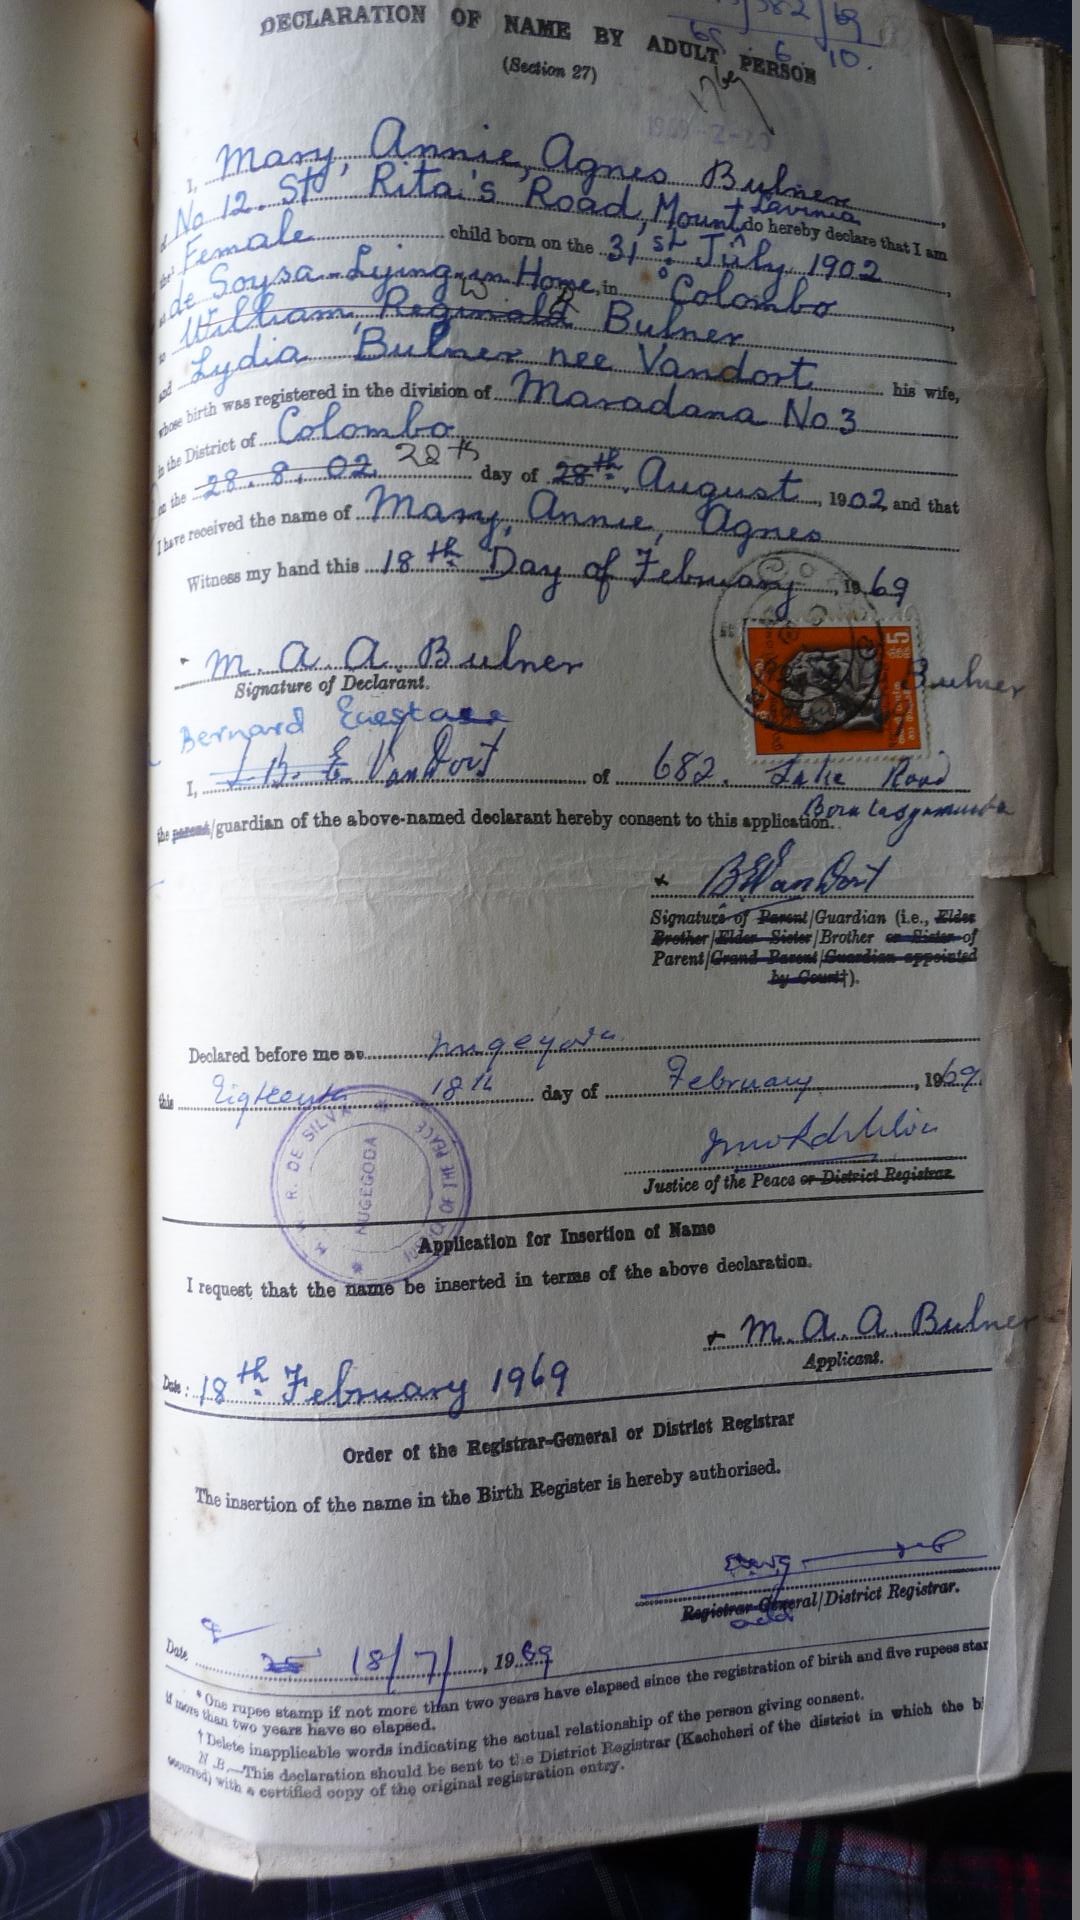 382/69
65 6 10.
DECLARATION OF NAME BY ADULT PERSON
(Section 27)
1969-2-20
I, Mary, Annie, Agnes Bulner
of No 12. St Rita's Road, Mount Lavinia do hereby declare that I am
the Female child born on the 31st July 1902
at de Soysa-Lying-in Home, in Colombo
to William Reginald Bulner
and Lydia Bulner nee Vandort his wife,
whose birth was registered in the division of Maradana No 3
in the District of Colombo
on the 28. 8. 02 28th day of 28th August, 1902 and that
I have received the name of Mary, Annie, Agnes
Witness my hand this 18th Day of February, 1969
M. A. A. Bulner
Signature of Declarant.
5
Bulner
Bernard Eustace
I, B. E. VanDort of 682. Lake Road
Boralesgamuwa
the parent/guardian of the above-named declarant hereby consent to this application.
x B E VanDort
Signature of Parent/Guardian (i.e., Elder
Brother/Elder Sister/Brother or Sister of
Parent/Grand Parent/Guardian appointed
by Court†).
Declared before me at Nugegoda
this Eighteenth 18th day of February, 1969.
M. R. DE SILVA
NUGEGODA
JUSTICE OF THE PEACE
Justice of the Peace or District Registrar.
Application for Insertion of Name
I request that the name be inserted in terms of the above declaration.
M. A. A. Bulner
Applicant.
Date: 18th February 1969
Order of the Registrar-General or District Registrar
The insertion of the name in the Birth Register is hereby authorised.
Registrar-General/District Registrar.
Date 25 18/7/, 1969
* One rupee stamp if not more than two years have elapsed since the registration of birth and five rupees star
if more than two years have so elapsed.
† Delete inapplicable words indicating the actual relationship of the person giving consent.
N. B.—This declaration should be sent to the District Registrar (Kachcheri of the district in which the bi
occurred) with a certified copy of the original registration entry.